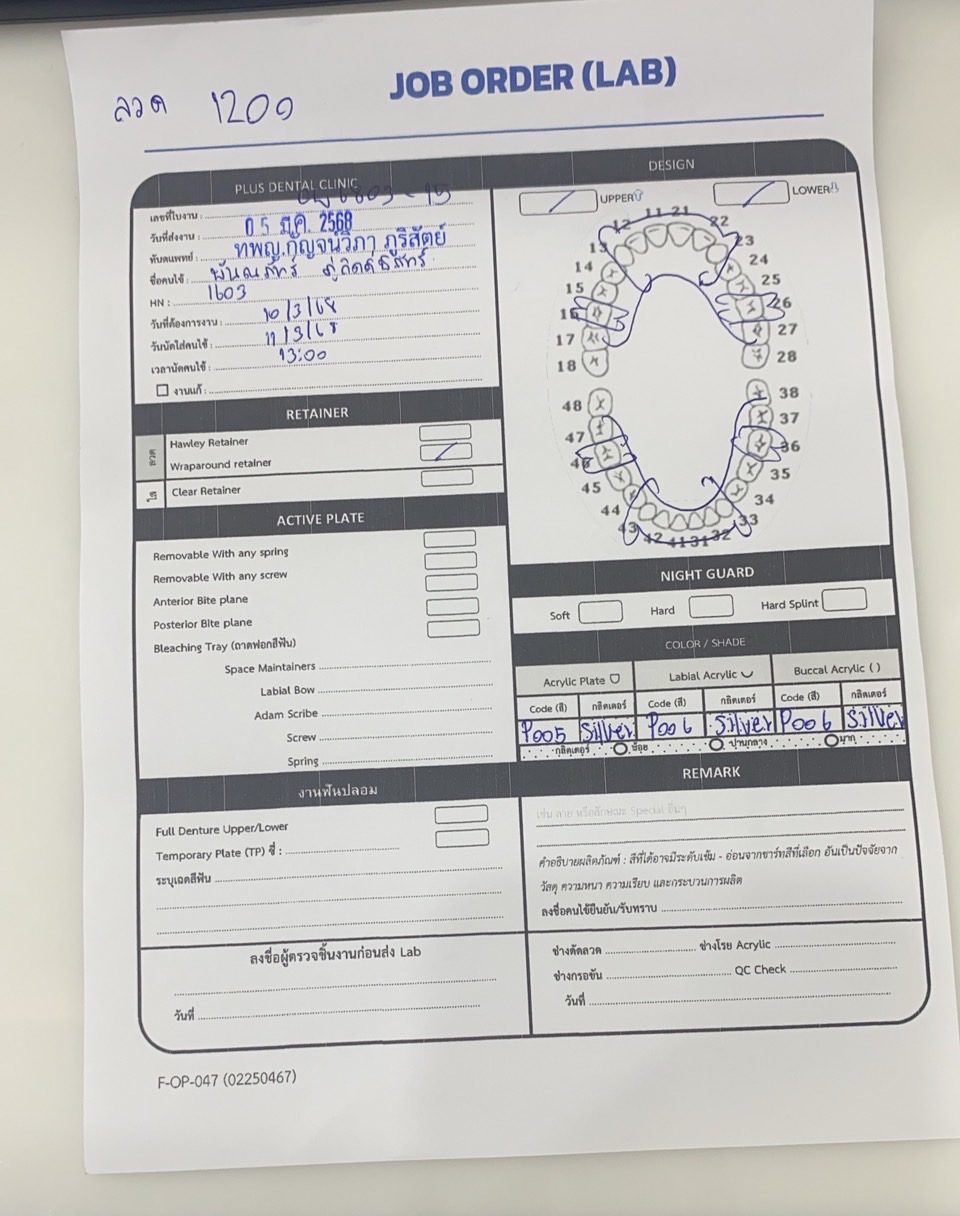 ลวด 1200
JOB ORDER (LAB)
PLUS DENTAL CLINIC
เลขที่ใบงาน : 6803 - 19
วันที่ส่งงาน : 05 มี.ค. 2568
ทันตแพทย์ : ทพญ.กัญจน์วิภา ภูริสัตย์
ชื่อคนไข้ :
HN : 1603
วันที่ต้องการงาน : 10/3/68
วันนัดใส่คนไข้ : 11/3/68
เวลานัดคนไข้ : 13:00
งานแก้ :
RETAINER
ลวด
Hawley Retainer
Wraparound retainer
ใส
Clear Retainer
ACTIVE PLATE
Removable With any spring
Removable With any screw
Anterior Bite plane
Posterior Bite plane
Bleaching Tray (ถาดฟอกสีฟัน)
Space Maintainers
Labial Bow
Adam Scribe
Screw
Spring
งานฟันปลอม
Full Denture Upper/Lower
Temporary Plate (TP) ซี่ :
ระบุเฉดสีฟัน
ลงชื่อผู้ตรวจชิ้นงานก่อนส่ง Lab
วันที่
DESIGN
UPPER LOWER
11 21
12 22
13 23
14 24
15 25
16 26
17 27
18 28
48 38
47 37
46 36
45 35
44 34
43 33
42 41 31 32
NIGHT GUARD
Soft Hard Hard Splint
COLOR / SHADE
Acrylic Plate Labial Acrylic Buccal Acrylic ( )
Code (สี) กลิตเตอร์ Code (สี) กลิตเตอร์ Code (สี) กลิตเตอร์
P005 Silver P006 Silver P006 Silver
กลิตเตอร์ น้อย ปานกลาง มาก
REMARK
เช่น ลาย หรือลักษณะ Special อื่นๆ
คำอธิบายผลิตภัณฑ์ : สีที่ได้อาจมีระดับเข้ม - อ่อนจากชาร์ทสีที่เลือก อันเป็นปัจจัยจาก
วัสดุ ความหนา ความเรียบ และกระบวนการผลิต
ลงชื่อคนไข้ยืนยัน/รับทราบ
ช่างดัดลวด ช่างโรย Acrylic
ช่างกรอขัน QC Check
วันที่
F-OP-047 (02250467)